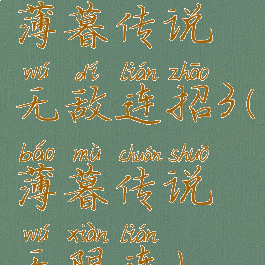 薄暮传说
wú dí lián zhāo
无敌连招3(
báo mù chuán shuō
薄暮传说
wú xiàn lián
无限连)